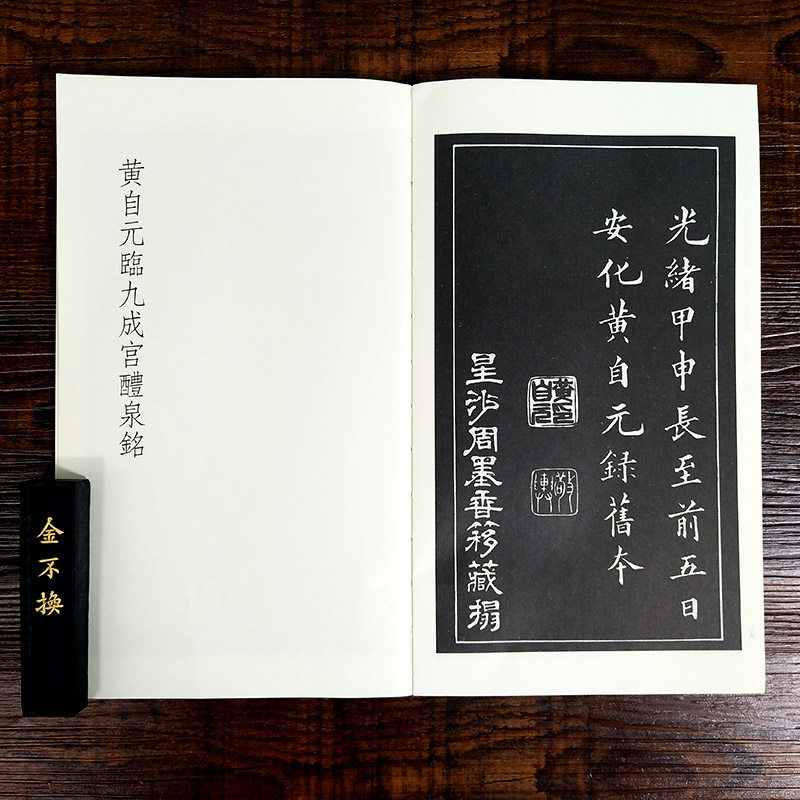 光緒甲申長至前五日
安化黄自元録舊本
黄自元印
敬輿
星沙周墨香簃藏搨
黄自元臨九成宮醴泉銘
金不換